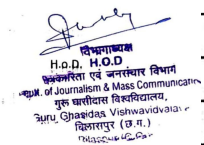 विभागाध्यक्ष
H.O.D. H.O.D
पत्रकारिता एवं जनसंचार विभाग
of Journalism & Mass Communication
गुरू घासीदास विश्वविद्यालय,
Guru Ghasidas Vishwavidyalaya
बिलासपुर (छ.ग.)